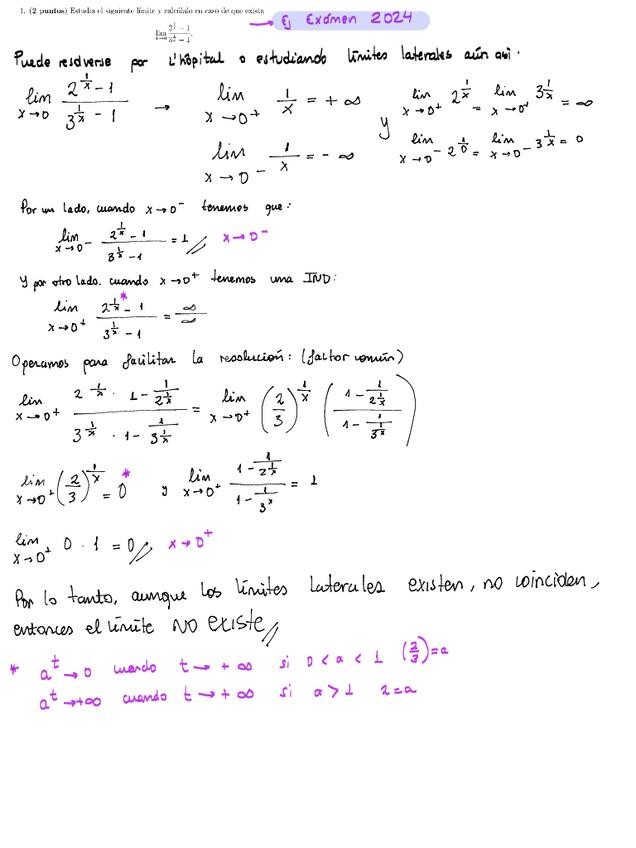 1. (2 puntos) Estudia el siguiente límite y calcúlalo en caso de que exista → Ej Exámen 2024
lim x→0 (2^(1/x) − 1)/(3^(1/x) − 1)
Puede resolverse por L'hôpital o estudiando límites laterales aún así.
lim x→0 (2^(1/x) − 1)/(3^(1/x) − 1) → lim x→0⁺ 1/x = +∞ y lim x→0⁺ 2^(1/x) = lim x→0⁺ 3^(1/x) = ∞
lim x→0⁻ 1/x = −∞ lim x→0⁻ 2^(1/0) = lim x→0⁻ 3^(1/x) = 0
Por un lado, cuando x→0⁻ tenemos que:
lim x→0⁻ (2^(1/x) − 1)/(3^(1/x) − 1) = 1 // x→0⁻
Y por otro lado. cuando x→0⁺ tenemos una IND:
lim x→0⁺ (2^(1/x)* − 1)/(3^(1/x) − 1) = ∞/∞
Operamos para facilitar la resolución: (factor común)
lim x→0⁺ (2^(1/x) · 1 − 1/2^(1/x))/(3^(1/x) · 1 − 1/3^(1/x)) = lim x→0⁺ (2/3)^(1/x) ((1 − 1/2^(1/x))/(1 − 1/3^(1/x)))
lim x→0⁺ (2/3)^(1/x) = 0* y lim x→0⁺ (1 − 1/2^(1/x))/(1 − 1/3^x) = 1
lim x→0⁺ 0 · 1 = 0 // x→0⁺
Por lo tanto, aunque los límites laterales existen, no coinciden,
entonces el límite NO EXISTE //
* a^t → 0 cuando t → +∞ si 0 < a < 1 (2/3) = a
a^t → +∞ cuando t → +∞ si a > 1 2 = a